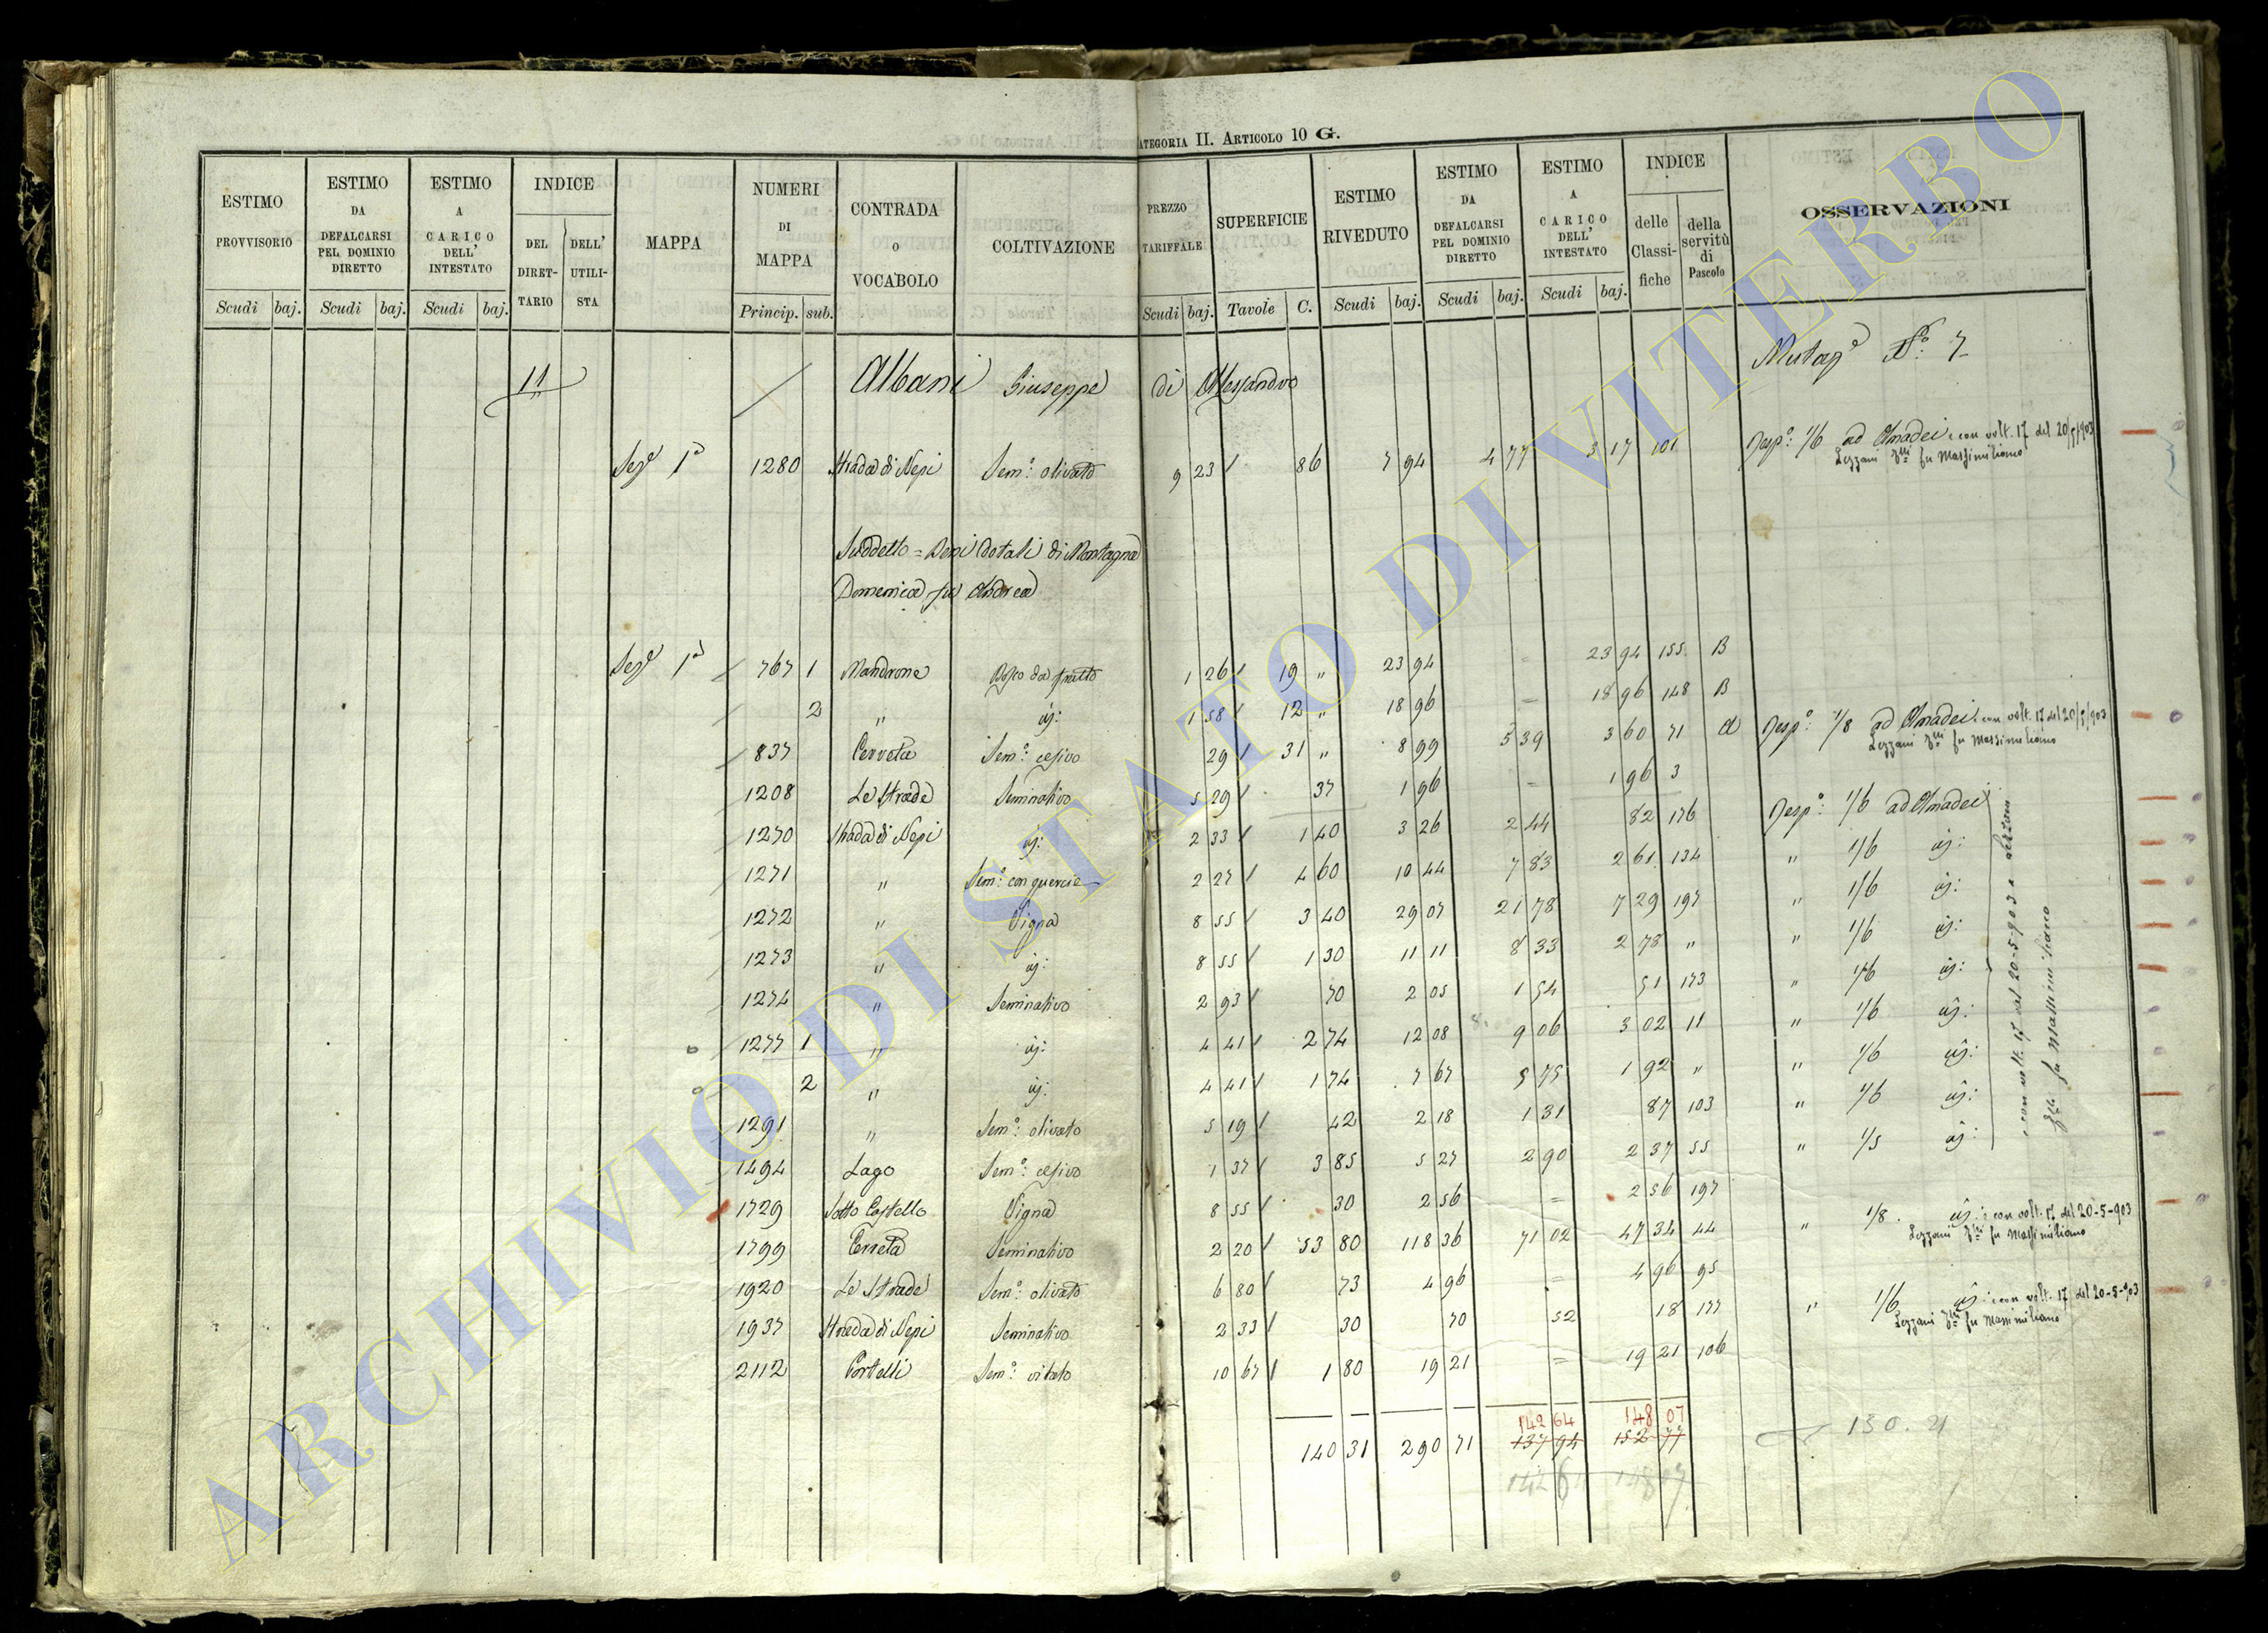 ATEGORIA II. ARTICOLO 10 G.
ESTIMO PROVVISORIO | ESTIMO DA DEFALCARSI PEL DOMINIO DIRETTO | ESTIMO A CARICO DELL' INTESTATO | INDICE DEL DIRETTARIO | DELL' UTILISTA | MAPPA | NUMERI DI MAPPA | CONTRADA O VOCABOLO | COLTIVAZIONE | PREZZO TARIFFALE | SUPERFICIE | ESTIMO RIVEDUTO | ESTIMO DA DEFALCARSI PEL DOMINIO DIRETTO | ESTIMO A CARICO DELL' INTESTATO | INDICE delle Classifiche | della servitù di Pascolo | OSSERVAZIONI
Scudi baj. Scudi baj. Scudi baj. Princip. sub. Scudi baj. Tavole C. Scudi baj. Scudi baj. Scudi baj.
11 Albani Giuseppe di Alessandro Mutazе N.º 7
Sezе 1ª 1280 Strada di Nepi Sem.º olivato 9 23 86 7 94 4 77 3 17 101 Risp.º 1/6 ad Amadei e con volt. 17 del 20/5/903
Lezzani F.lli fu Massimiliano
Suddetto = Beni dotali di Montagna
Domenica fu Andrea
Sezе 1ª 767 1 Mandrone Bosco da frutto 1 26 19 " 23 94 = 23 94 155 B
2 " id: 1 58 12 " 18 96 = 18 96 148 B
837 Cerreta Sem.º cesivo 29 31 " 8 99 5 39 3 60 71 A Risp.º 1/8 ad Amadei e con volt. 17 del 20/5/903
Lezzani F.lli fu Massimiliano
1208 Le Strade Seminativo 5 29 37 1 96 = 1 96 3
1270 Strada di Nepi id: 2 33 1 40 3 26 2 44 82 176 Risp.º 1/6 ad Amadei
1271 " Sem.º con quercie 2 27 4 60 10 44 7 83 2 61 134 " 1/6 id:
1272 " Vigna 8 55 3 40 29 07 21 78 7 29 197 " 1/6 id:
1273 " id: 8 55 1 30 11 11 8 33 2 78 " " 1/6 id:
1274 " Seminativo 2 93 70 2 05 1 54 51 173 " 1/6 id:
1277 1 " id: 4 41 2 74 12 08 9 06 3 02 11 " 1/6 id:
2 " id: 4 41 1 74 7 67 5 75 1 92 " " 1/6 id:
1291 " Sem.º olivato 5 19 42 2 18 1 31 87 103 " 1/6 id:
1494 Lago Sem.º cesivo 1 37 3 85 5 27 2 90 2 37 55 " 1/5 id:
e con volt. 17 del 20-5-903 a Lezzani
F.lli fu Massimiliano
1729 Sotto Castello Vigna 8 55 30 2 56 = 2 56 197
1799 Cerreta Seminativo 2 20 53 80 118 36 71 02 47 34 44 " 1/8 id: e con volt. 17 del 20-5-903
Lezzani F.lli fu Massimiliano
1920 Le Strade Sem.º olivato 6 80 73 4 96 = 4 96 95
1937 Strada di Nepi Seminativo 2 33 30 70 52 18 177 " 1/6 id: e con volt. 17 del 20-5-903
Lezzani F.lli fu Massimiliano
2112 Portelli Sem.º vitato 10 67 1 80 19 21 = 19 21 106
142 64 148 07
140 31 290 71 137 94 152 77 130.21
142 64 148 07
ARCHIVIO DI STATO DI VITERBO